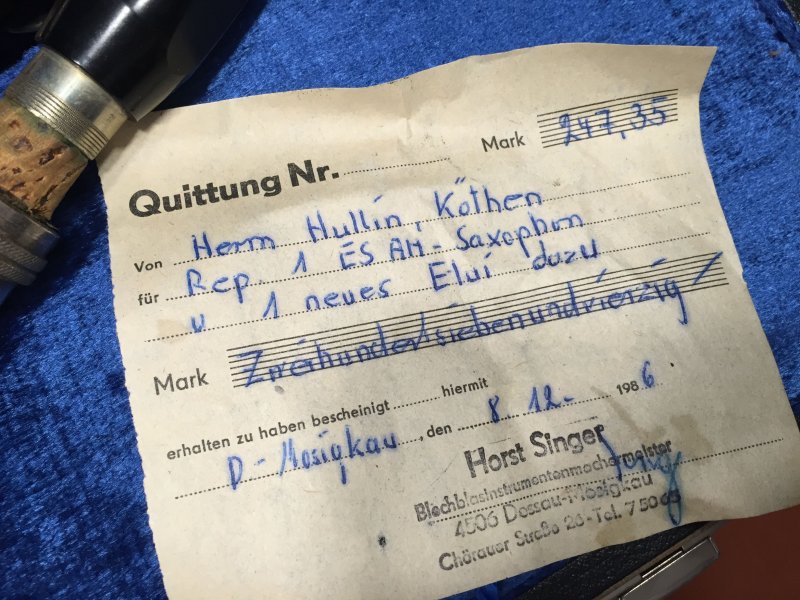 Quittung Nr.
Mark 247,35
Von Herrn Hullin, Köthen
für Rep. 1 ES Alt-Saxophon
u 1 neues Etui dazu
Mark Zweihundertsiebenundvierzig
erhalten zu haben bescheinigt hiermit
D-Mosigkau, den 8. 12. 1986
Horst Singer
Blechblasinstrumentenmachermeister
4506 Dessau-Mosigkau
Chörauer Straße 26 - Tel. 7 50 65